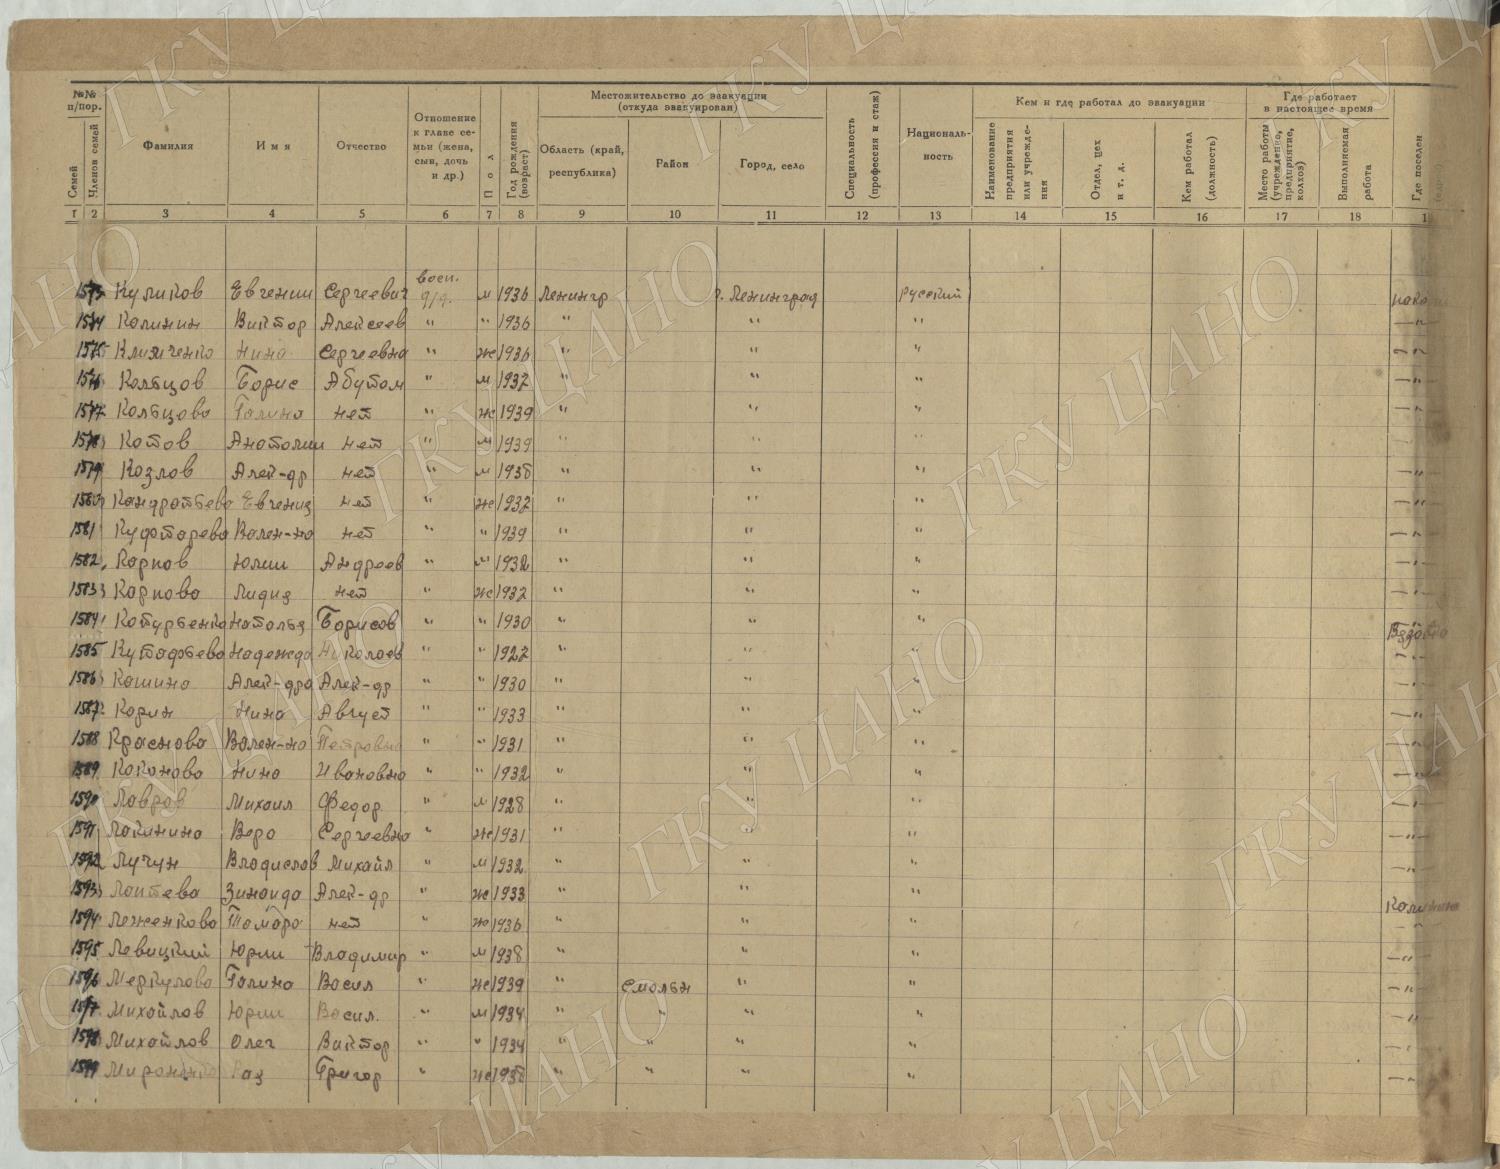 №№ п/пор.
Семей
Членов семей
Фамилия
Имя
Отчество
Отношение к главе семьи (жена, сын, дочь и др.)
Пол
Год рождения (возраст)
Местожительство до эвакуации (откуда эвакуирован)
Область (край, республика)
Район
Город, село
Специальность (профессия и стаж)
Национальность
Кем и где работал до эвакуации
Наименование предприятия или учреждения
Отдел, цех и т. д.
Кем работал (должность)
Где работает в настоящее время
Место работы (учреждение, предприятие, колхоз)
Выполняемая работа
Где поселен
1 2 3 4 5 6 7 8 9 10 11 12 13 14 15 16 17 18 1
1573 Куликов Евгении Сергеевич восп. д/д. м 1936 Ленингр г. Ленинград русский
1574 Калинин Виктор Алексеев " " 1936 " " " —"—
1575 Климченко Нина Сергеевна " ж 1936 " " " —"—
1576 Кольцов Борис " м 1937 " " " —"—
1577 Кольцова Галина нет " ж 1939 " " " —"—
1578 Котов Анатолии нет " м 1939 " " "
1579 Козлов Алек-др нет " м 1938 " " " —"—
1580 Кондратьева Евгения нет " ж 1937 " " " —"—
1581 Куфтарева Вален-на нет " " 1939 " " " —"—
1582 Карпов Юлии Андреев " м 1932 " " " —"—
1583 Карпова Лидия нет " ж 1937 " " " —"—
1584 Натолья Борисов " " 1930 " " "
1585 Надежда Николаев " " 1927 " " " —"—
1586 Кашина Алек-дра Алек-др " " 1930 " " " —"—
1587 Карин Нина Август " " 1933 " " " —"—
1588 Краснова Вален-на Петровна " " 1931 " " " —"—
1589 Каканова Нина Ивановна " " 1932 " " " —"—
1590 Лавров Михаил Федор " м 1928 " " " —"—
1591 Лакинина Вера Сергеевна " ж 1931 " " " —"—
1592 Лучун Владислав Михайл " м 1932 " " " —"—
1593 Лаптева Зинаида Алек-др " ж 1933 " " " Калинино
1594 Леженкова Тамара нет " ж 1936 " " " —"—
1595 Левицкий Юрии Владимир " м 1938 " " " —"—
1596 Меркулова Галина Васил " ж 1939 " Смольн " " —"—
1597 Михайлов Юрии Васил. " м 1934 " " " " —"—
1598 Михайлов Олег Виктор " " 1934 " " " " —"—
1599 Григор " ж 1938 " " " " —"—
ГКУ ЦАНО